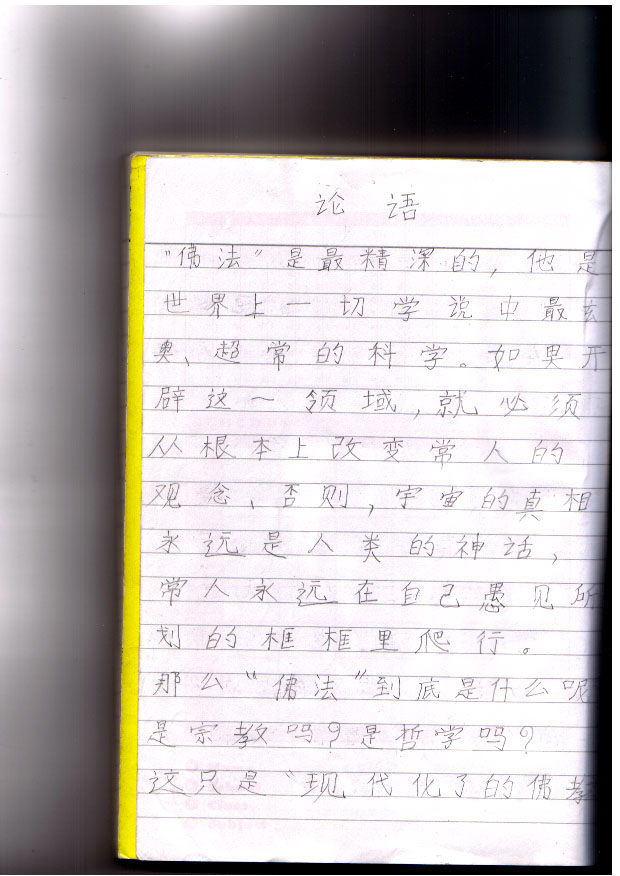 论 语
"佛法"是最精深的，他是
世界上一切学说中最玄
奥、超常的科学。如果开
辟这一领域，就必须
从根本上改变常人的
观念、否则，宇宙的真相
永远是人类的神话，
常人永远在自己愚见所
划的框框里爬行。
那么"佛法"到底是什么呢
是宗教吗？是哲学吗？
这只是"现代化了的佛教